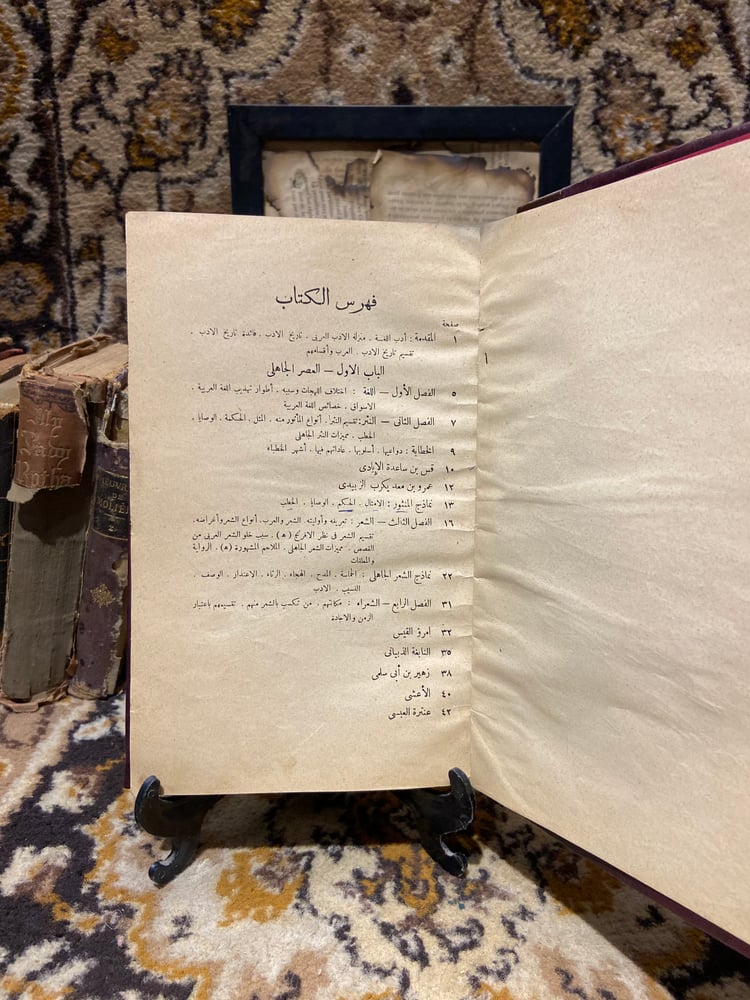 فهرس الكتاب
صفحة
١ المقدمة : أدب اللغة . منزلة الادب العربى . تاريخ الادب . فائدة تاريخ الادب .
تقسيم تاريخ الادب . العرب وأقسامهم
الباب الاول — العصر الجاهلى
٥ الفصل الأول — اللغة : اختلاف اللهجات وسببه . أطوار تهذيب اللغة العربية .
الاسواق . خصائص اللغة العربية
٧ الفصل الثانى — النثر: تقسيم النثر. أنواع المأثور منه . المثل . الحكمة . الوصايا .
الخطب . مميزات النثر الجاهلى
٩ الخطابة : دواعيها . أسلوبها . عاداتهم فيها . أشهر الخطباء
١٠ قس بن ساعدة الإيادى
١٢ عمرو بن معد يكرب الزبيدى
١٣ نماذج المنثور : الامثال . الحكم . الوصايا . الخطب
١٦ الفصل الثالث — الشعر : تعريفه وأوليته. الشعر والعرب. أنواع الشعر وأغراضه.
تقسيم الشعر فى نظر الافرنج (ه) . سبب خلو الشعر العربى من
القصص . مميزات الشعر الجاهلى . الملاحم المشهورة (ه) . الرواية
والمعلقات
٢٢ نماذج الشعر الجاهلى : الحماسة . المدح . الهجاء . الرثاء . الاعتذار . الوصف .
النسيب . الادب
٣١ الفصل الرابع — الشعراء : مكانتهم . من تكسب بالشعر منهم . تقسيمهم باعتبار
الزمن والاجادة
٣٢ امرؤ القيس
٣٥ النابغة الذبيانى
٣٨ زهير بن أبى سلمى
٤٠ الأعشى
٤٢ عنترة العبسى
My
Lady
Rotha
DE
MOLIÈRE